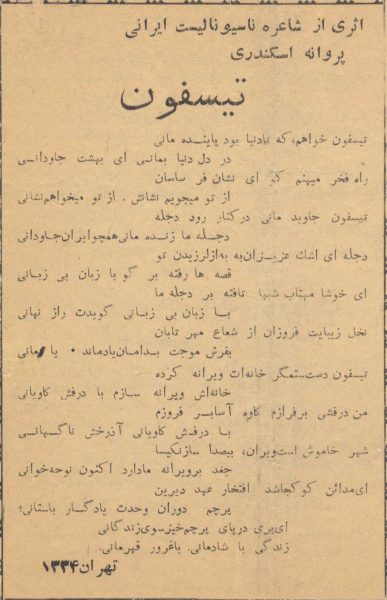 اثری از شاعره ناسیونالیست ایرانی
پروانه اسکندری
تیسفون
تیسفون خواهم، که تادنیا بود پاینده مانی
در دل دنیا بمانی ای بهشت جاودانی
راه فخر میهنم کو ای نشان فر ساسان
از تو میجویم نشانش . از تو میخواهم نشانی
تیسفون جاوید مانی درکنار رود دجله
دجله ما زنده مانی همچو ایران جاودانی
دجله ای اشک عزیزان به لرزیدن تو
قصه ها رفته بر گو با زبان بی زبانی
ای خوشا مهتاب شبها تافته بر دجله ما
با زبان بی زبانی گویدت راز نهانی
نخل زیبایت فروزان از شعاع مهر تابان
بفرش موجت بدامان یادماند . یا مانی
تیسفون دست ستمگر خانه‌ات ویرانه کرده
خانه‌اش ویرانه سازم با درفش کاویانی
من درفشی برفرازم کاوه آسا بر فروزم
با درفش کاویانی آذرخش ناگهانی
شهر خاموش است ویران، بیصدا ساز نکیسا
جغد بر ویرانه مادارد اکنون نوحه‌خوانی
ای مدائن کو کجا شد افتخار عهد دیرین
پرچم دوران وحدت یادگار باستانی؟
ای پری دریای پرچم خیز سوی زندگانی
زندگی با شادمانی. باغرور قهرمانی.
تهران ۱۳۳۴